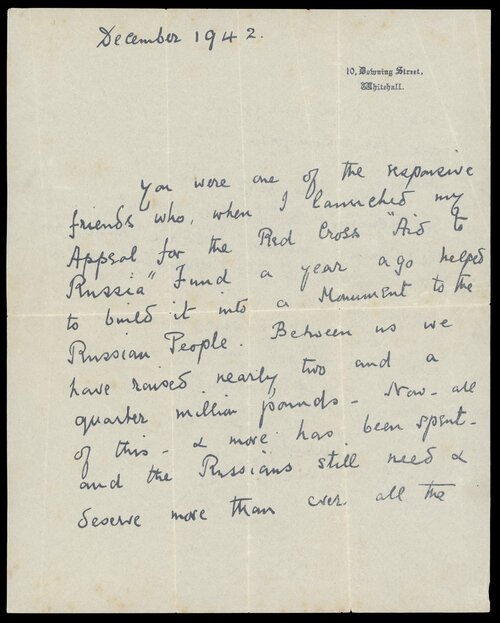 December 1942.
10, Downing Street,
Whitehall.
You were one of the responsive
friends who, when I launched my
Appeal for the Red Cross "Aid to
Russia" Fund a year ago helped
to build it into a Monument to the
Russian People. Between us we
have raised nearly two and a
quarter million pounds - Now - all
of this - & more has been spent -
and the Russians still need &
deserve more than ever all the